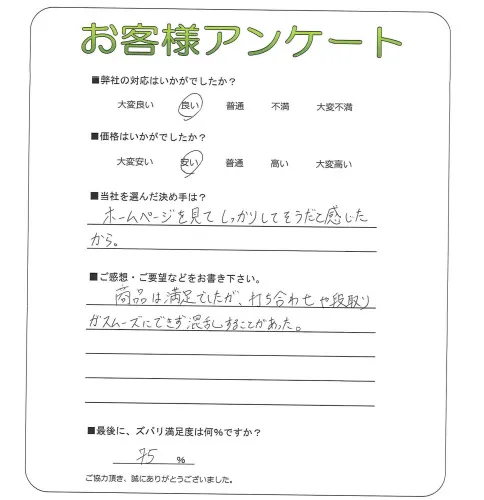 お客様アンケート
■弊社の対応はいかがでしたか?
大変良い 良い 普通 不満 大変不満
■価格はいかがでしたか?
大変安い 安い 普通 高い 大変高い
■当社を選んだ決め手は?
ホームページを見てしっかりしてそうだと感じた
から。
■ご感想・ご要望などをお書き下さい。
商品は満足でしたが、打ち合わせや段取り
がスムーズにできず混乱することがあった。
■最後に、ズバリ満足度は何%ですか?
75 %
ご協力頂き、誠にありがとうございました。